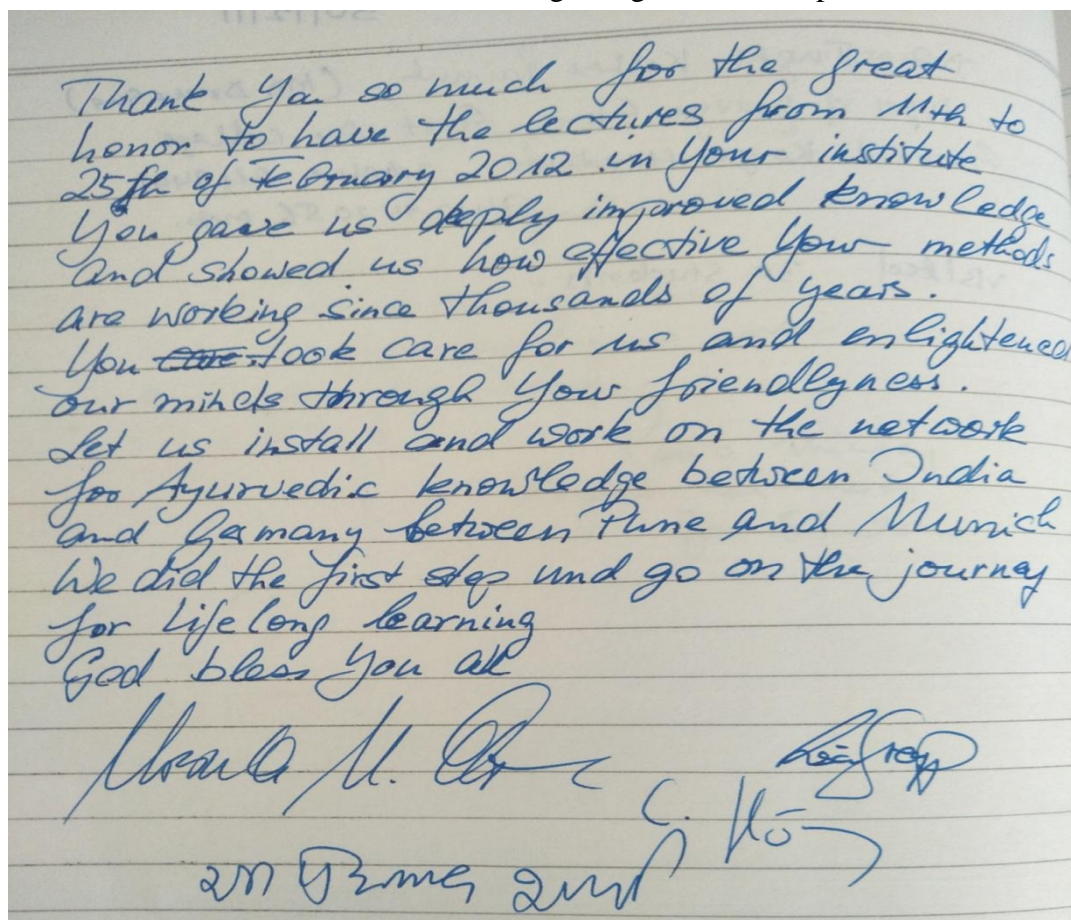 Thank You so much for the great
honor to have the lectures from 11th to
25th of February 2012 in Your institute
You gave us deeply improved knowledge
and showed us how effective Your methods
are working since thousands of years.
You took care for us and enlightened
our minds through Your friendlyness.
Let us install and work on the network
for Ayurvedic knowledge between India
and Germany between Pune and Munich
We did the first step und go on the journey
for Lifelong learning
God bless You all
Ursula M.
C.